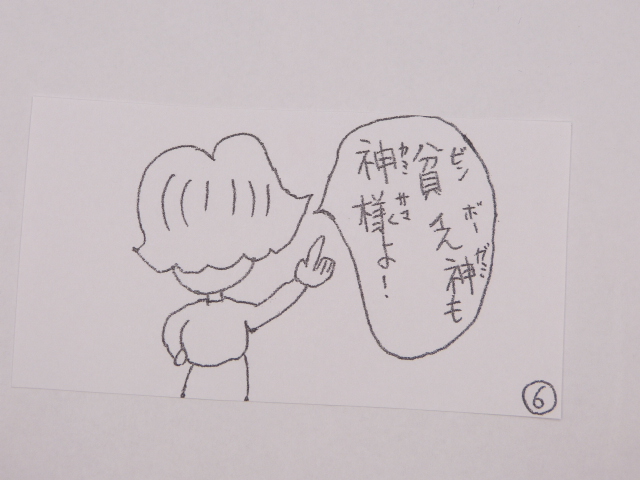 貧乏神も
神様よ!
ビンボーガミ
カミサマ
6